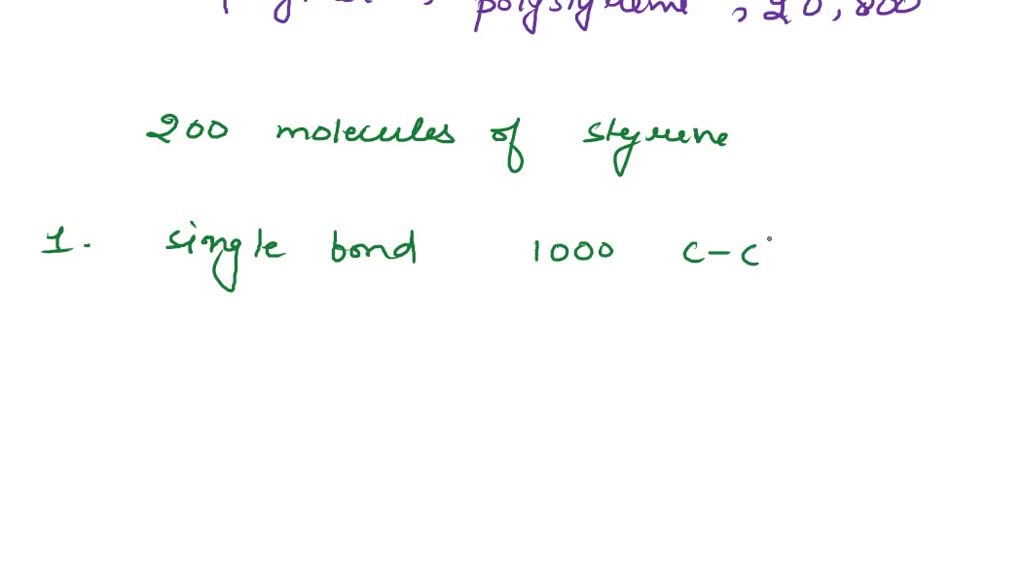 polystyrene , 20,800
200 molecules of styrene
1. single bond 1000 C-C